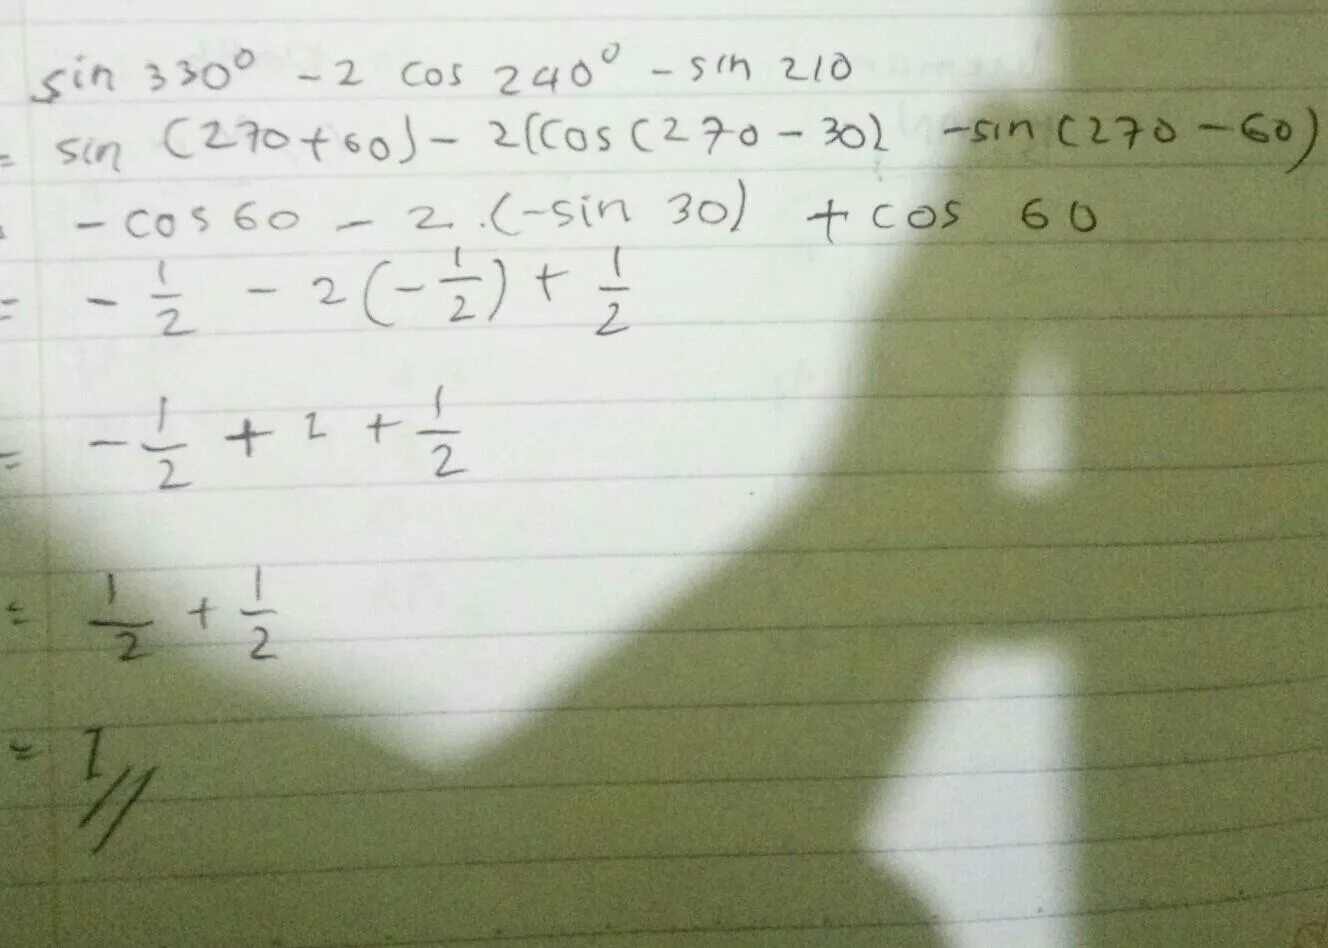 sin 330° - 2 cos 240° - sin 210
= sin (270+60) - 2(cos(270-30) -sin(270-60)
= -cos 60 - 2.(-sin 30) + cos 60
= - 1/2 - 2(-1/2) + 1/2
= - 1/2 + 1 + 1/2
= 1/2 + 1/2
= 1//